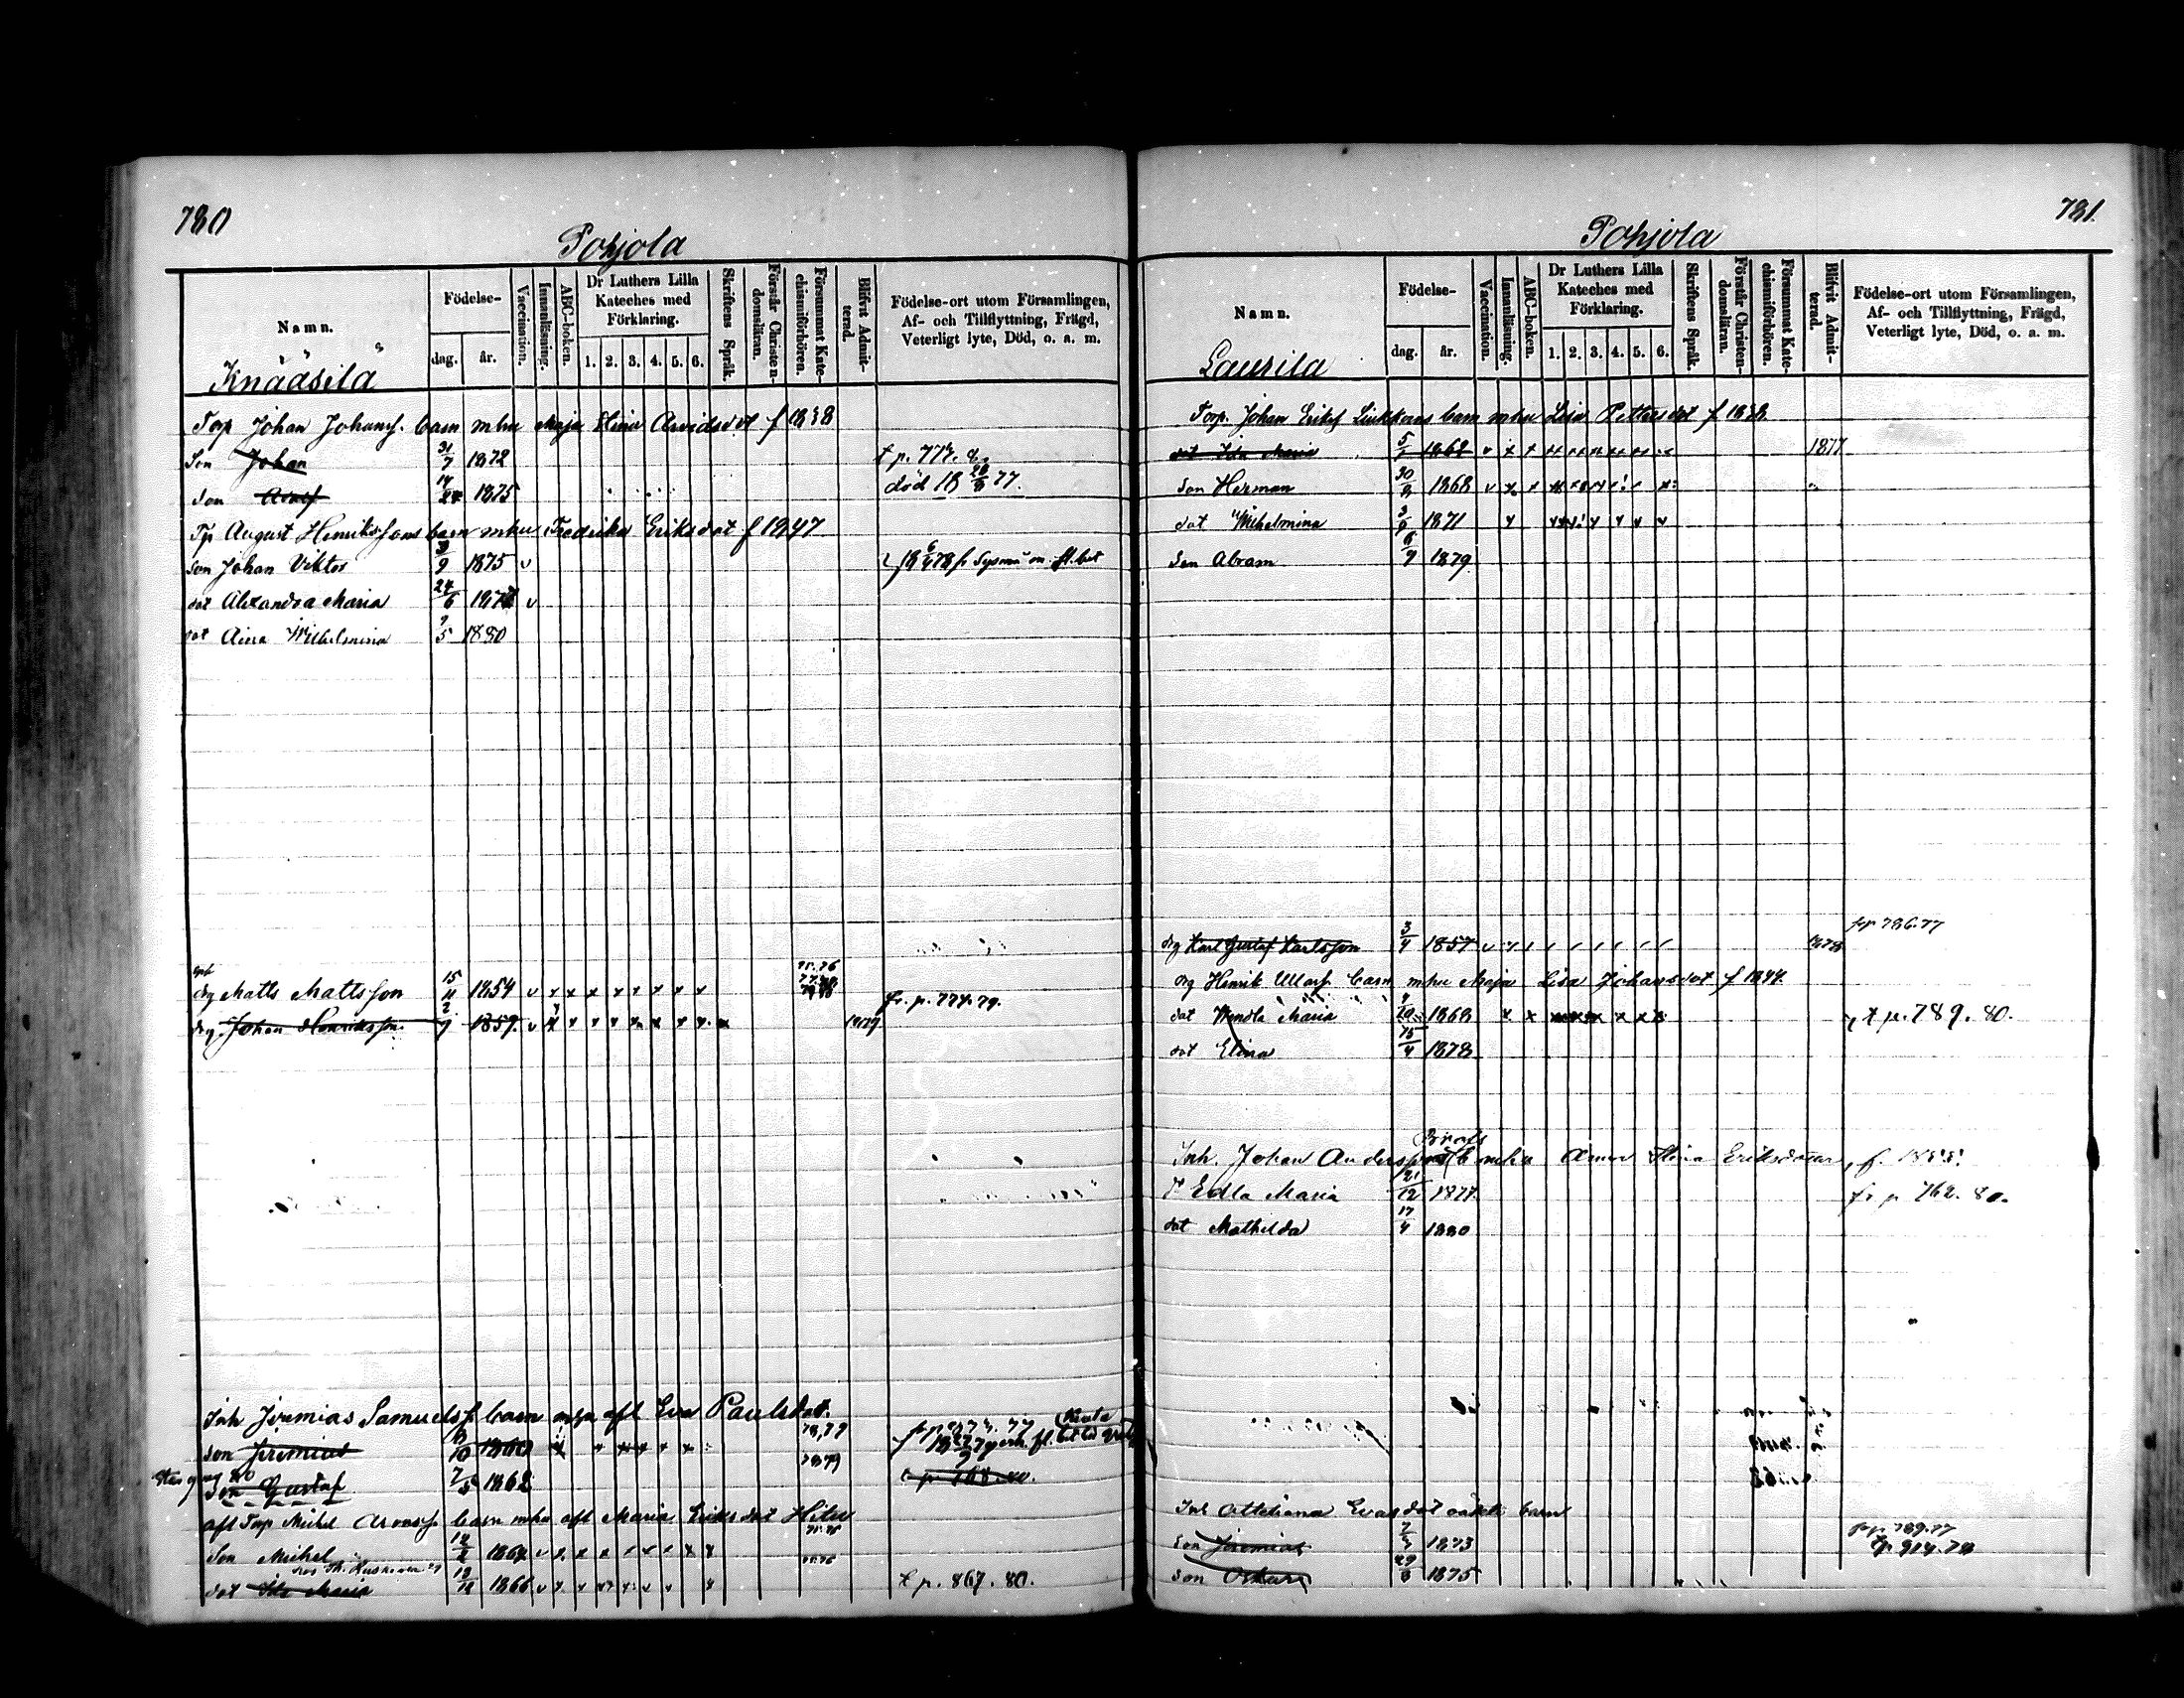 780
Pohjola
Namn.
Födelse-
dag. år.
Vaccination.
Innanläsning.
ABC-boken.
Dr Luthers Lilla
Kateches med
Förklaring.
1. 2. 3. 4. 5. 6.
Skriftens Språk.
Förstår Christen-
domsläran.
Försummat Kate-
chismiförhören.
Blifvit Admit-
terad.
Födelse-ort utom Församlingen,
Af- och Tillflyttning, Frägd,
Veterligt lyte, Död, o. a. m.
Knääsilä
Torp Johan Johansf. barn mhu Maja Stina Arvidsdot f 1838
Son Johan 31/7 1872 t p. 774.
Son Adolf 1875 död 18 28/8 77.
Tp August Henrikssons barn mhu Fredrika Eriksdot f 1847
son Johan Viktor 3/9 1875 v
dot Alexandra Maria 24/6 187 v
dot Aina Wilhelmina 9/5 1880
drg Matts Mattsson 15/11 1854 v x x x x x x x x
drg Johan Henriksson 2/7 1859 1879 fr. p. 774. 79.
Inh Jeremias Samuelsf. barn mhu afl Eva Paulsdot.
son Jeremias 1860 78,79
son Gustaf 7/5 1862 t p. 768.80.
afl Torp Michel Aronsf. barn mhu afl Maria Eriksdot
Son Michel 12/2 1864 75.76
dot Ida Maria 12/12 1866 t p. 867. 80.
781.
Pohjola
Namn.
Födelse-
dag. år.
Vaccination.
Innanläsning.
ABC-boken.
Dr Luthers Lilla
Kateches med
Förklaring.
1. 2. 3. 4. 5. 6.
Skriftens Språk.
Förstår Christen-
domsläran.
Försummat Kate-
chismiförhören.
Blifvit Admit-
terad.
Födelse-ort utom Församlingen,
Af- och Tillflyttning, Frägd,
Veterligt lyte, Död, o. a. m.
Laurila
Torp. Johan Eriksf barn mhu Lisa Pettersdot f 1838.
dot Ida Maria 1862 1877
Son Herman 30/8 1868
dot Wilhelmina 3/9 1871
Son Abram 6/9 1879
drg Karl Gustaf Karlsson 3/4 1857 1878 fr p 786.77
drg Henrik barn mhu Maja Lisa Johansdot f 1844.
dot Wendla Maria 1868 t p. 789. 80.
dot Elina 15/4 1878
Inh. Johan Andersson b mhu Anna Stina Eriksdotter, f.
d Edla Maria 21/12 1877 fr p 762. 80.
dot Mathilda 17/4 1880
Inh Ottiliana Evasdot oäkta barn
Son Jeremias 7/5 1873 fr p. 789.77
son Oskar 29/8 1875 t p. 914.78